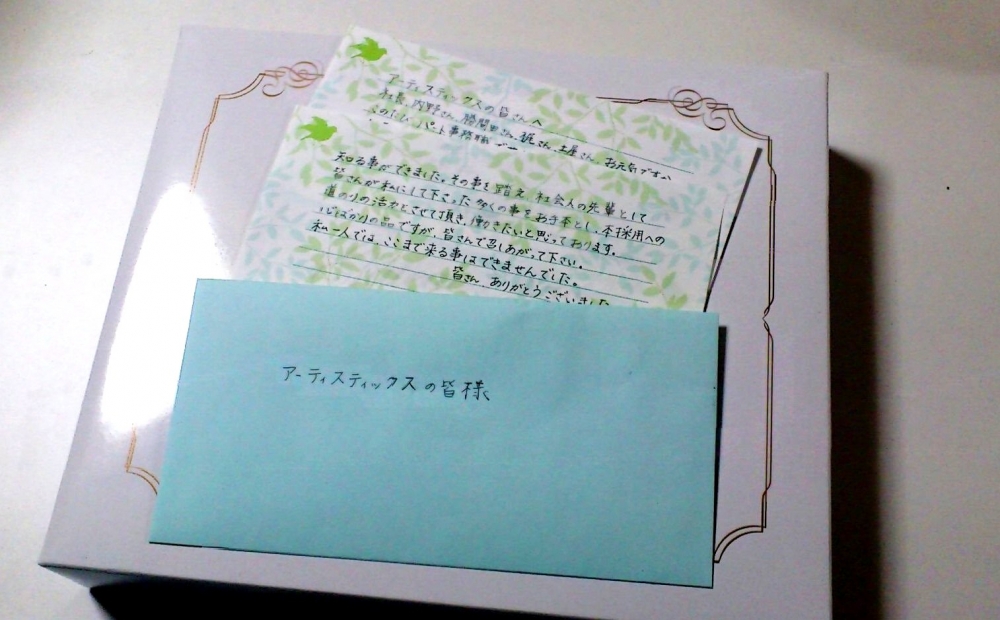 アーティスティックスの皆さんへ
社長、内野さん、勝間田さん、梶さん、土屋さん、お元気ですか
このたび、パート事務職
知る事ができました。その事を踏え、社会人の先輩として
皆さんが私にして下さった多くの事をお手本とし、本採用への
道のりの活力とさせて頂き、働きたいと思っております。
心ばかりの品ですが、皆さんで召しあがって下さい。
私一人では、ここまで来る事はできませんでした。
皆さん ありがとうございました
アーティスティックスの皆様